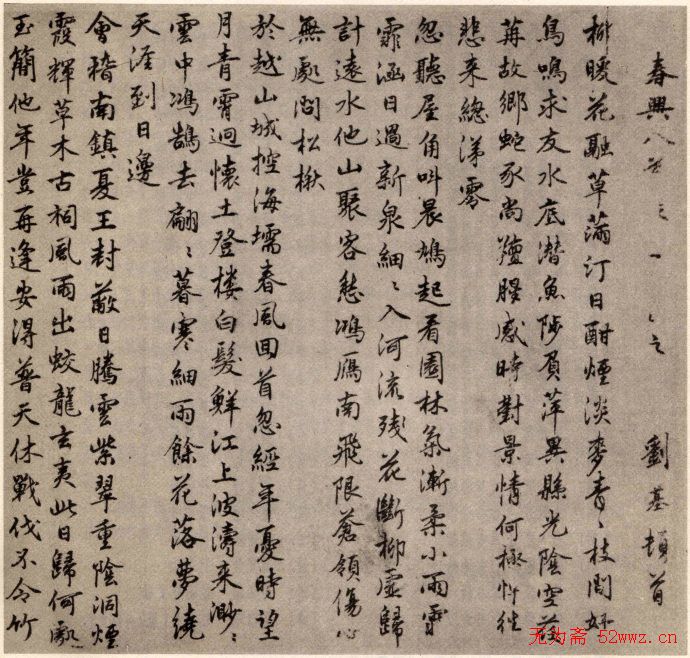 春興八首之一
劉基頓首
柳暖花融草滿汀日酣煙淡麥青〻枝間好
鳥鳴求友水底潛魚陟負萍異縣光陰空荏
苒故鄉蛇豕尚羶腥感時對景情何極往
悲来總涕零
忽聽屋角叫晨鳩起看園林氣漸柔小雨霏
霏涵日過新泉細〻入河流残花斷柳虛歸
計遠水他山聚客愁鴻鴈南飛限蒼領傷心
無處問松楸
於越山城控海壖春風回首忽經年憂時望
月青霄迥懷土登楼白髮鮮江上波濤来渺〻
雲中鴻鵠去翩〻暮寒細雨餘花落夢繞
天涯到日邊
會稽南鎮夏王封蔽日騰雲紫翠重陰洞煙
霞輝草木古祠風雨出蛟龍玄夷此日歸何處
玉簡他年豈再逢安得普天休戰伐不令竹
无为斋 52wwz.cn